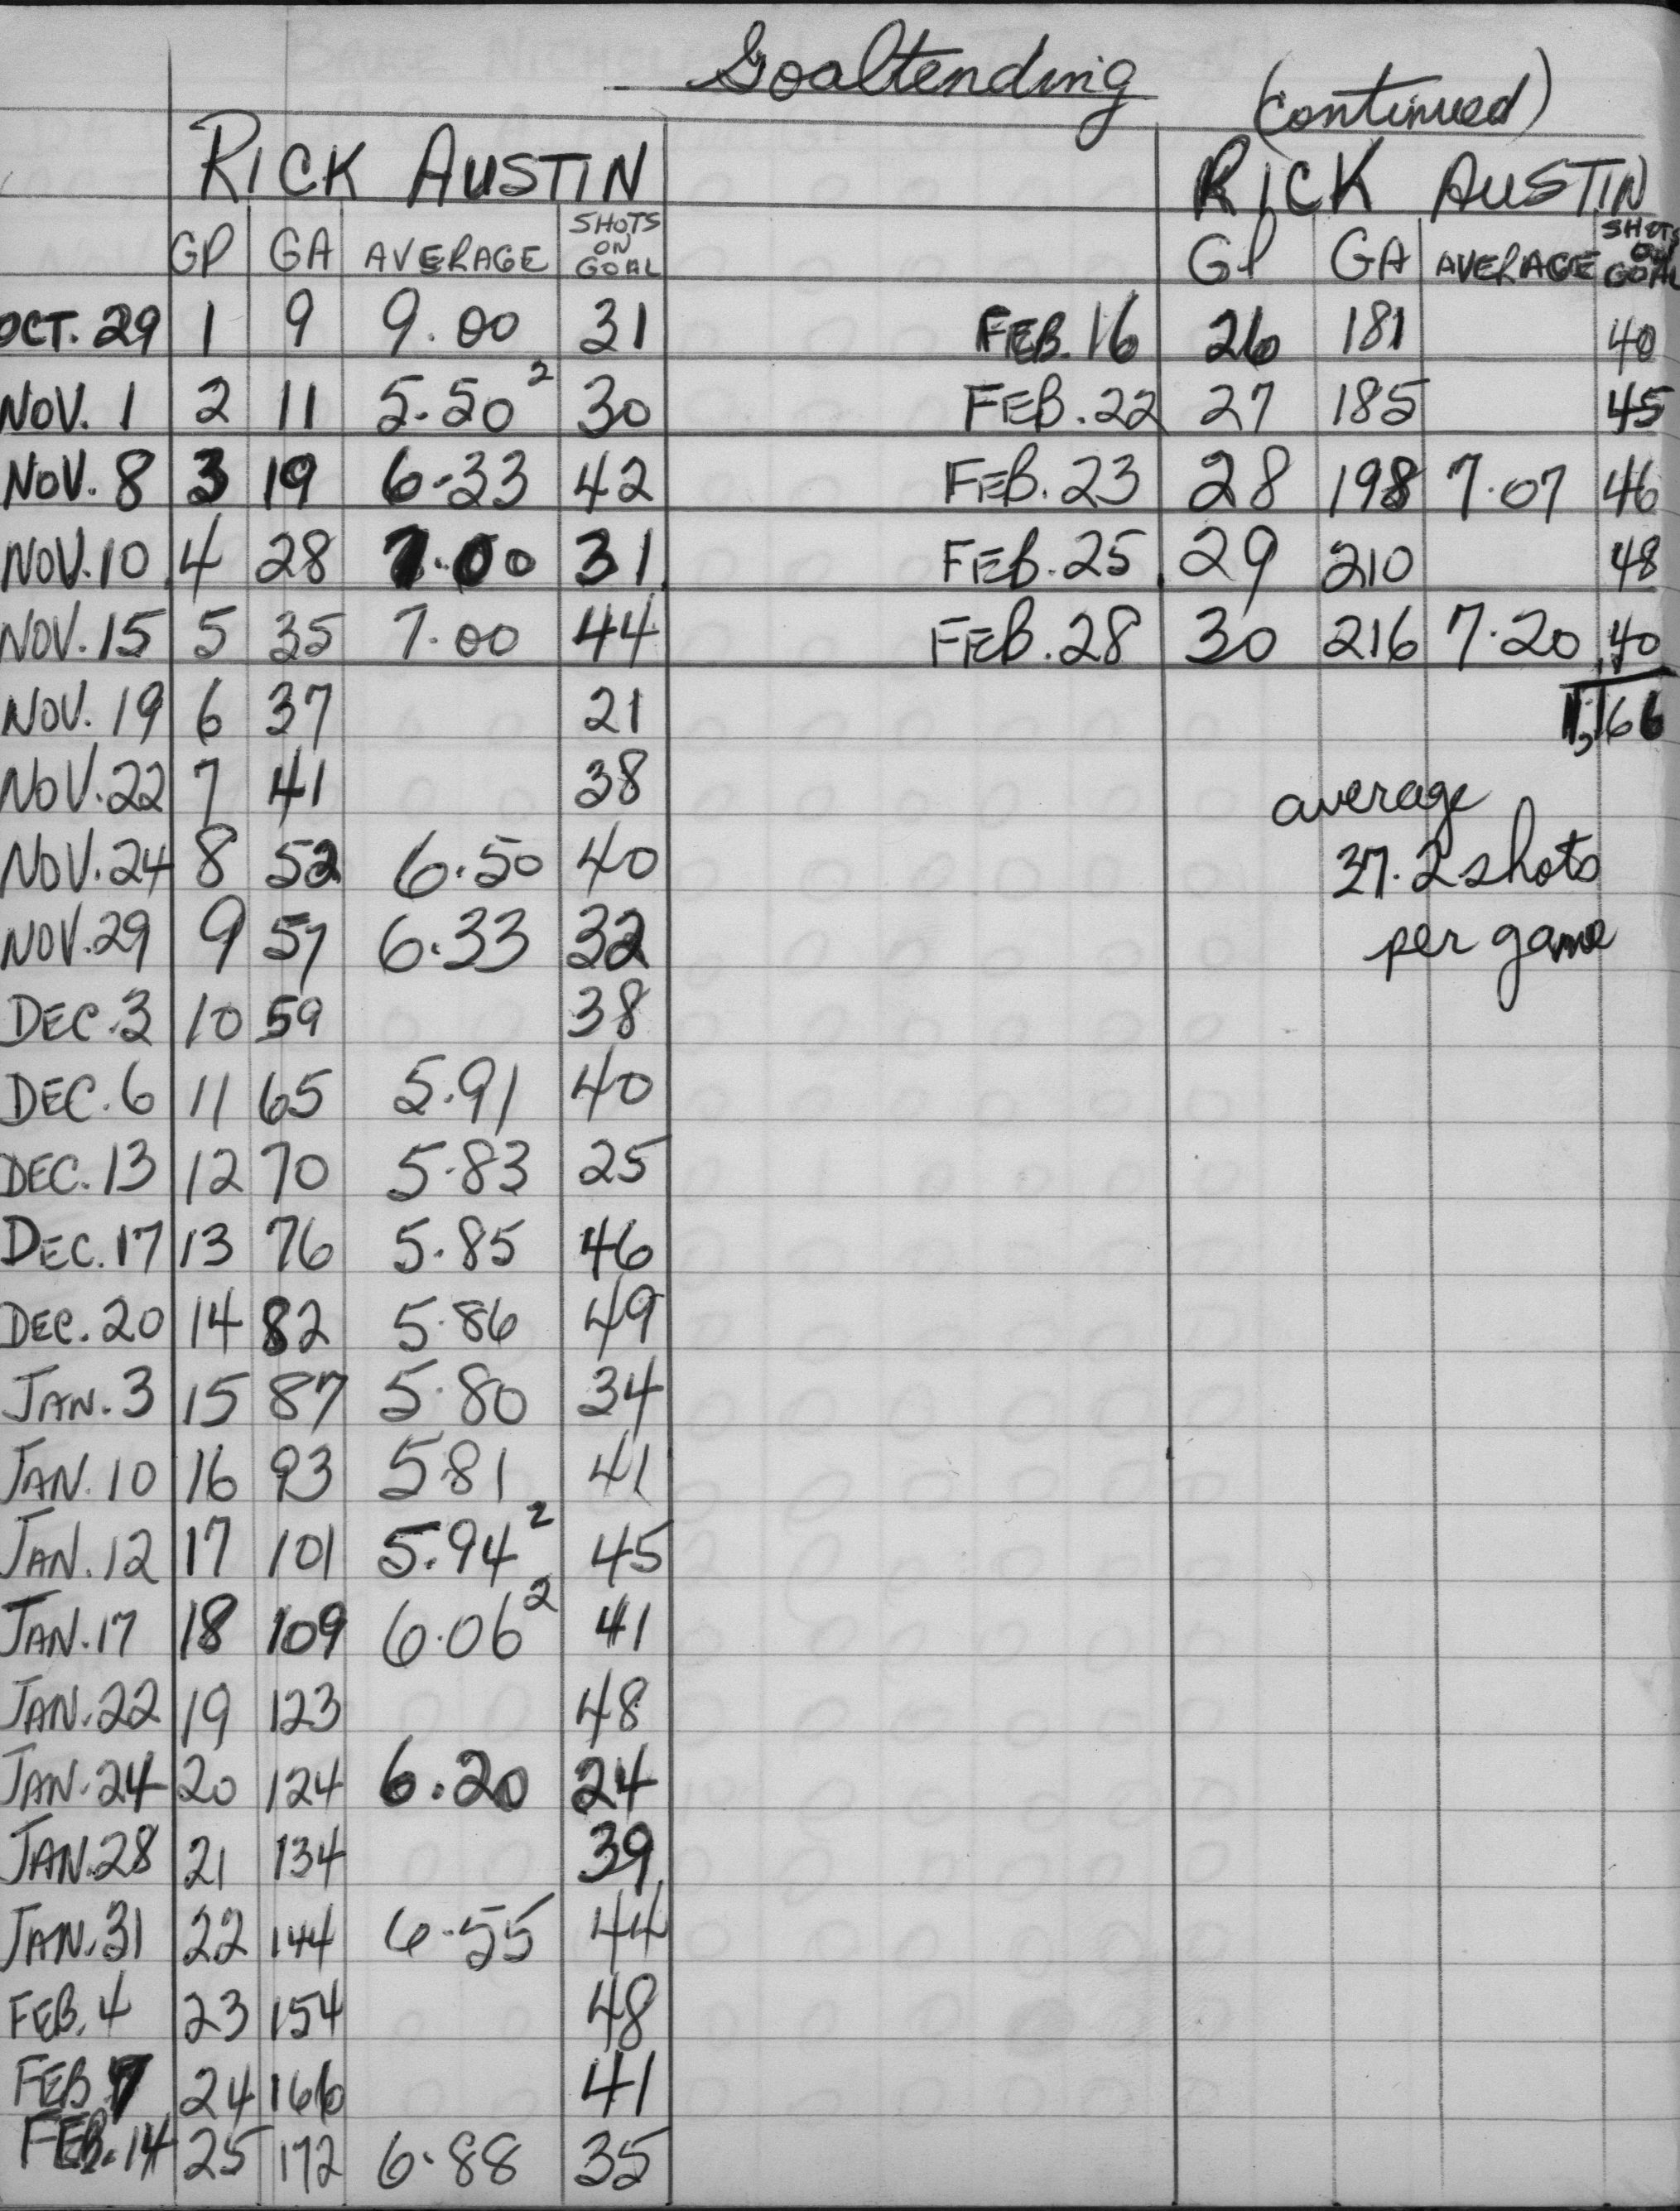 Goaltending (continued)
RICK AUSTIN
GP GA AVERAGE SHOTS ON GOAL
OCT. 29 1 9 9.00 31
NOV. 1 2 11 5.50² 30
NOV. 8 3 19 6.33 42
NOV. 10 4 28 7.00 31
NOV. 15 5 35 7.00 44
NOV. 19 6 37 21
NOV. 22 7 41 38
NOV. 24 8 52 6.50 40
NOV. 29 9 57 6.33 32
DEC. 3 10 59 38
DEC. 6 11 65 5.91 40
DEC. 13 12 70 5.83 25
DEC. 17 13 76 5.85 46
DEC. 20 14 82 5.86 49
JAN. 3 15 87 5.80 34
JAN. 10 16 93 5.81 41
JAN. 12 17 101 5.94² 45
JAN. 17 18 109 6.06² 41
JAN. 22 19 123 48
JAN. 24 20 124 6.20 24
JAN. 28 21 134 39
JAN. 31 22 144 6.55 44
FEB. 4 23 154 48
FEB 7 24 166 41
FEB. 14 25 172 6.88 35
RICK AUSTIN
GP GA AVERAGE SHOTS ON GOAL
FEB. 16 26 181 40
FEB. 22 27 185 45
FEB. 23 28 198 7.07 46
FEB. 25 29 210 48
FEB. 28 30 216 7.20 40
1,166
average
37.2 shots
per game